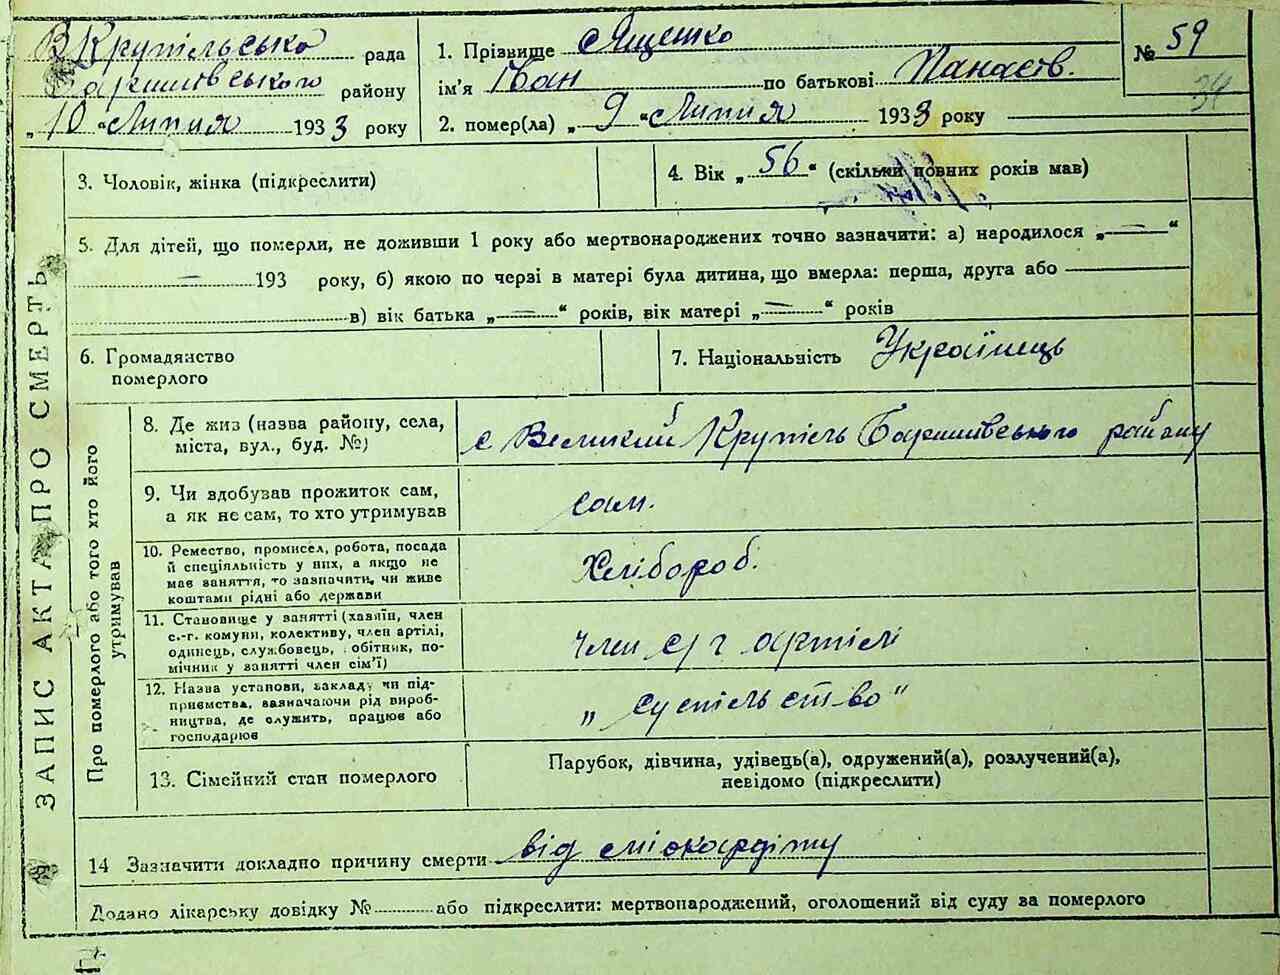 В Крупільсько рада
Баришівського району
„10“ Липня 1933 року
1. Прізвище Ященко
ім'я Іван по батькові Панасів.
2. помер(ла) „9“ Липня 1933 року
№ 59
34
3. Чоловік, жінка (підкреслити)
4. Вік „56“ (скільки повних років мав)
5. Для дітей, що померли, не доживши 1 року або мертвонароджених точно зазначити: а) народилося „—“
— 193 року, б) якою по черзі в матері була дитина, що вмерла: перша, друга або —
в) вік батька „—“ років, вік матері „—“ років
6. Громадянство
померлого
7. Національність Українець
ЗАПИС АКТА ПРО СМЕРТЬ
Про померлого або того хто його
утримував
8. Де жив (назва району, села,
міста, вул., буд. №)
с Великий Крупіль Баришівського району
9. Чи здобував прожиток сам,
а як не сам, то хто утримував
сам.
10. Ремество, промисел, робота, посада
й спеціяльність у них, а якщо не
мав заняття, то зазначити, чи живе
коштами рідні або держави
Хлібороб.
11. Становище у занятті (хазяїн, член
с.-г. комуни, колективу, член артілі,
одинець, службовець, обітник, по-
мічник у занятті член сім'ї)
член с/г артілі
12. Назва установи, закладу чи під-
приємства, зазначаючи рід вироб-
ництва, де служить, працює або
господарює
„Суспільство“
13. Сімейний стан померлого
Парубок, дівчина, удівець(а), одружений(а), розлучений(а),
невідомо (підкреслити)
14 Зазначити докладно причину смерти від міокардіту
Додано лікарську довідку № або підкреслити: мертвонароджений, оголошений від суду за померлого